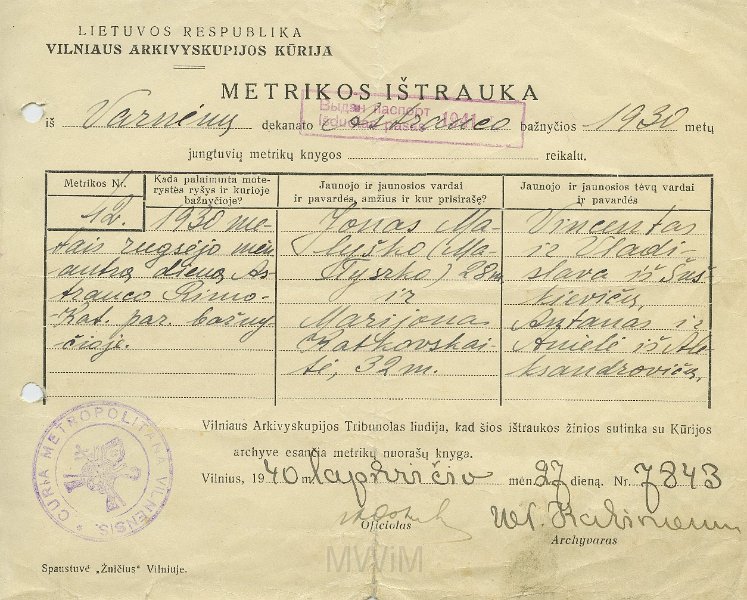 LIETUVOS RESPUBLIKA
VILNIAUS ARKIVYSKUPIJOS KŪRIJA
METRIKOS IŠTRAUKA
Выдан паспорт
Išduotas pasas 1941
iš Varnėnų dekanato Astravco bažnyčios 1930 metų
jungtuvių metrikų knygos reikalu.
Metrikos Nr.
Kada palaiminta moterystės ryšys ir kurioje bažnyčioje?
Jaunojo ir jaunosios vardai ir pavardės, amžius ir kur prisirašę?
Jaunojo ir jaunosios tėvų vardai ir pavardės
12.
1930 me-
tais rugsėjo mėn
antrą dieną As-
travco Rimo-
Kat. par bažny-
čioje.
Jonas Ma-
lyško (Ma-
łyszko) 28 m.
ir
Marijona
Katkovskai-
tė, 32 m.
Vincentas
ir Vladi-
slava iš Šus-
kievičių,
Antanas ir
Anielė iš Ale-
ksandrovičių.
Vilniaus Arkivyskupijos Tribunolas liudija, kad šios ištraukos žinios sutinka su Kūrijos
archyve esančia metrikų nuorašų knyga.
Vilnius, 1940 m. lapkričio mėn. 27 dieną. Nr. 7843
Oficiolas
Archyvaras
CURIA METROPOLITANA VILNENSIS.
MWiM
Spaustuvė „Žničius" Vilniuje.